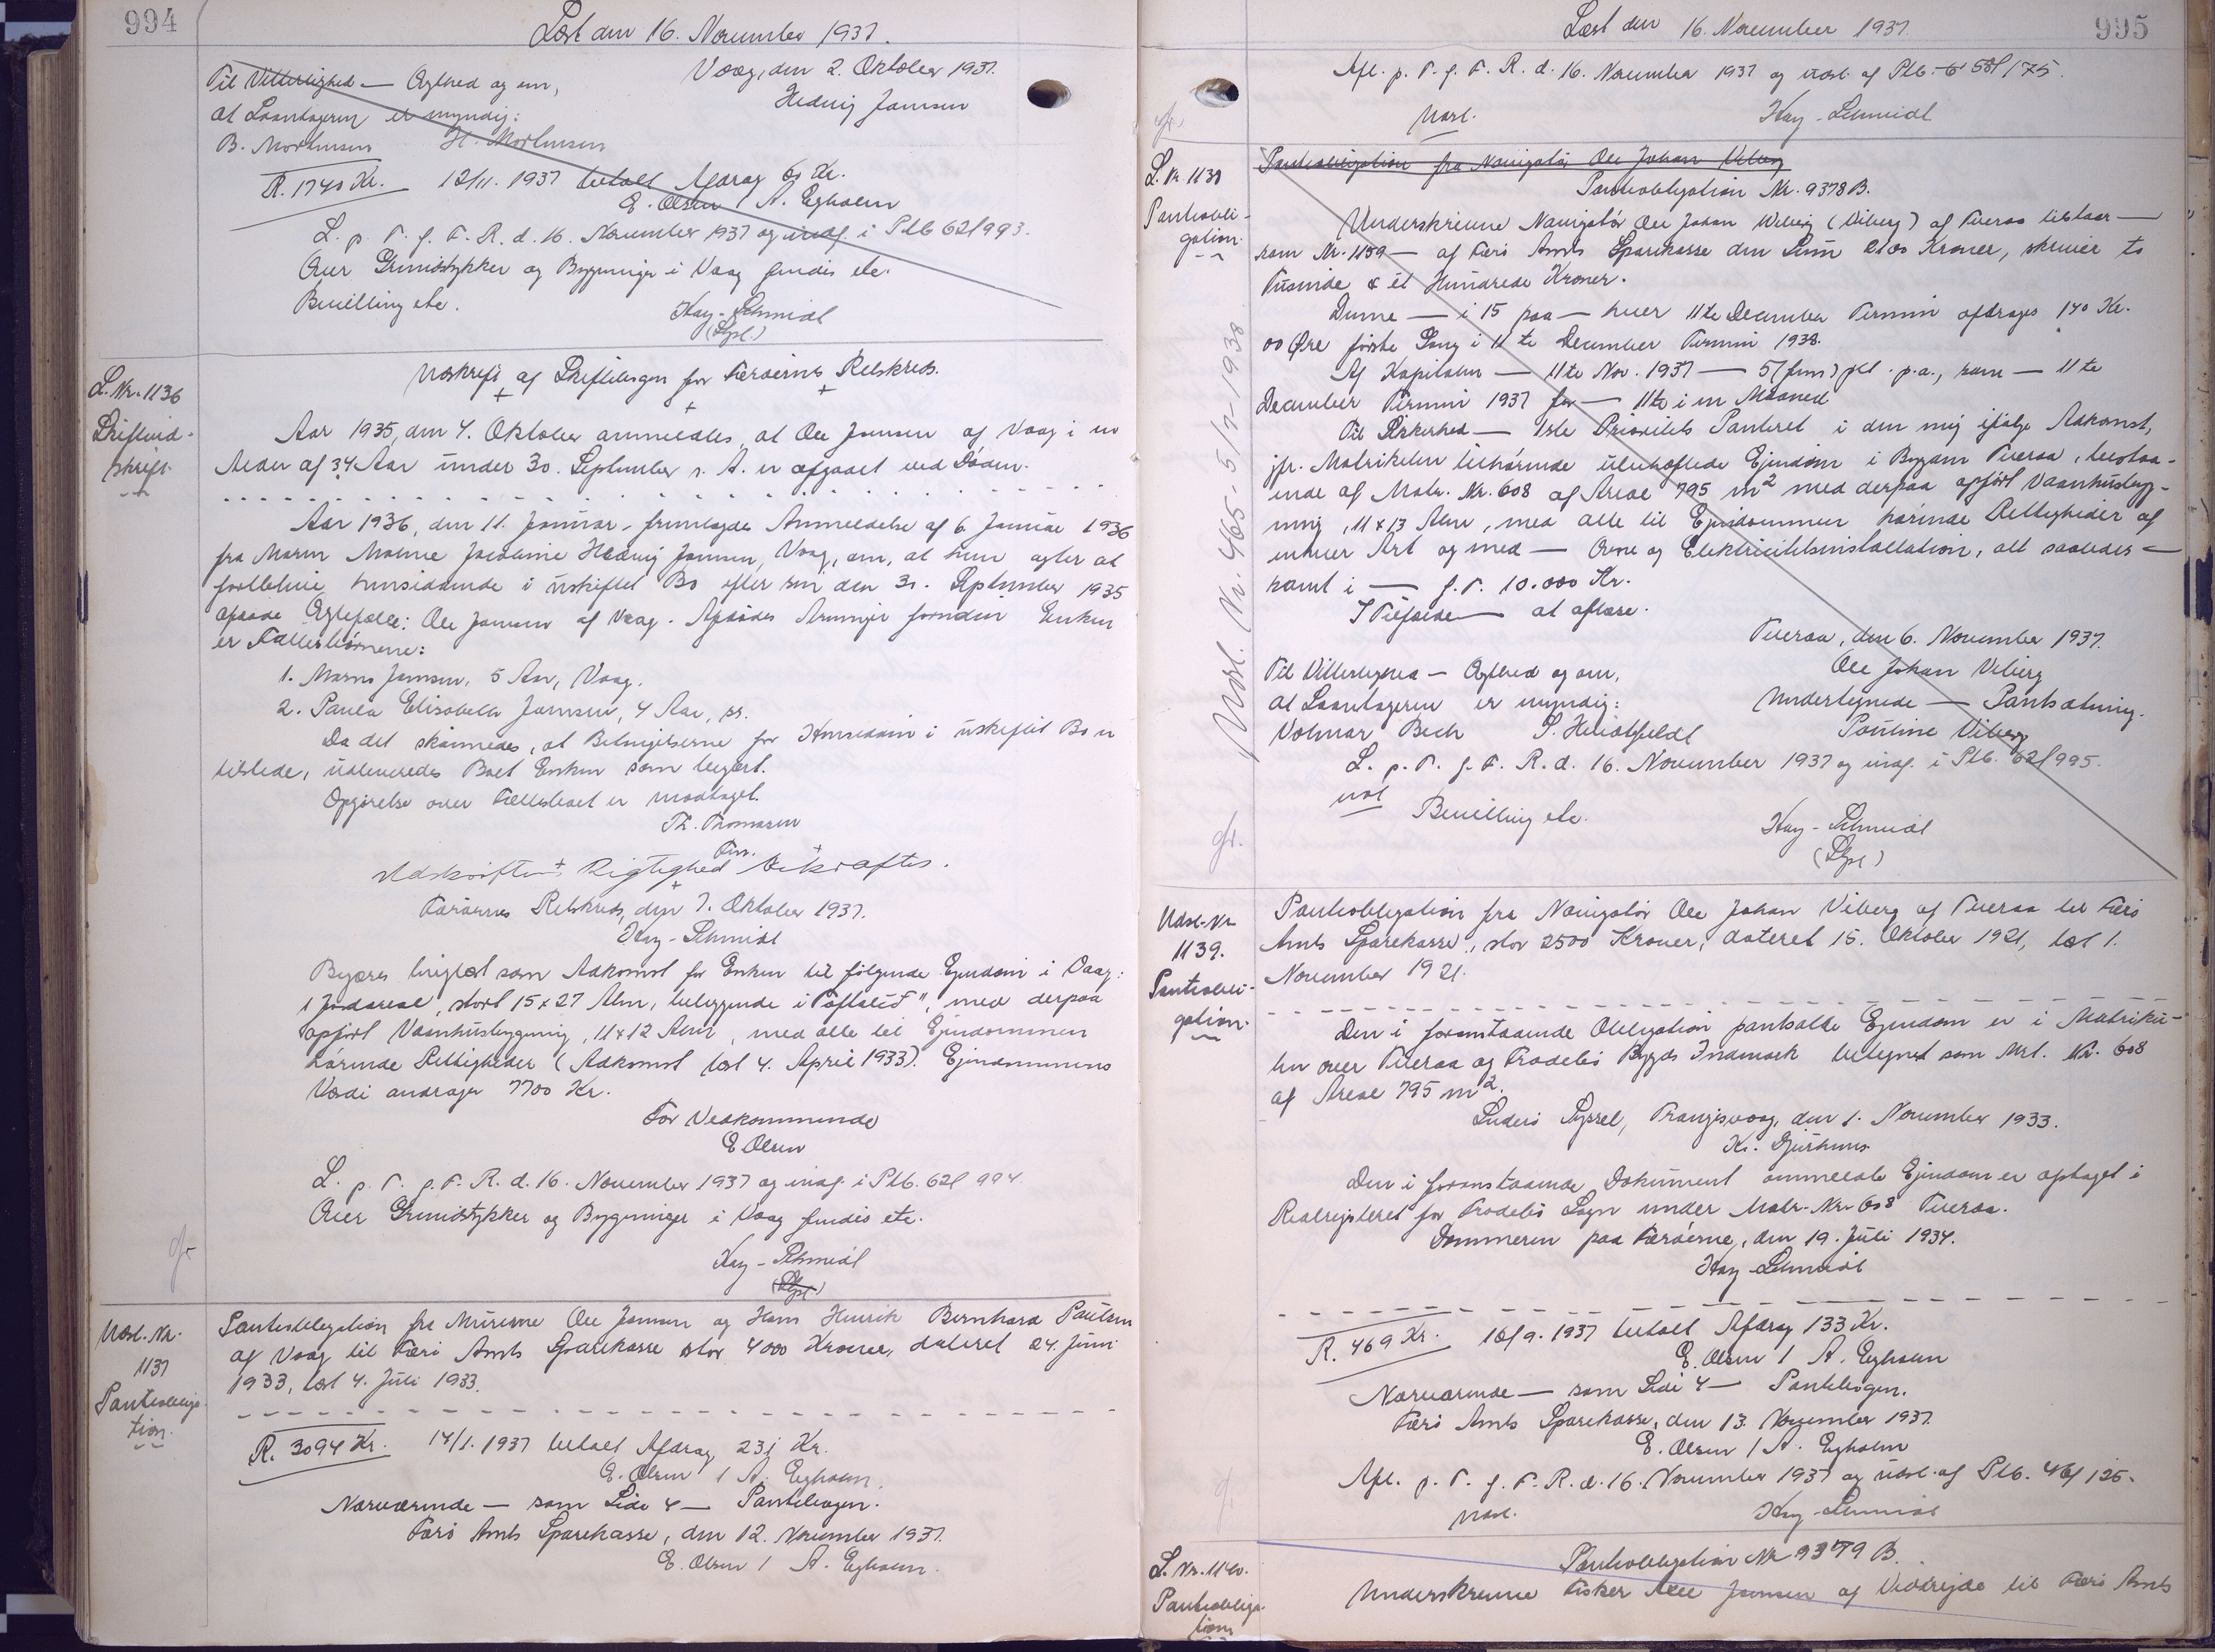 994
Læst den 16. November 1937.
Vaag, den 2. Oktober 1937.
Til Vitterlighed — Ægthed og om,
Hedvig Jamsen
at Laantageren er myndig:
B. Mortensen H. Mortensen
R. 1740 Kr. 12/11. 1937 betalt Afdrag 60 Kr.
E. Olsen / A. Egholm
L. p. T. f. F. R. d. 16. November 1937 og indf. i Ptb 62/993.
Over Grundstykker og Bygninger i Vaag findes etc.
Bevilling etc.
Kay-Schmidt
L. Nr. 1136
Skifteud-
skrift
Udskrift af Skiftebogen for Færøernes Retskreds.
Aar 1935, den 4. Oktober anmeldtes, at Ole Jamsen af Vaag i en
Alder af 34 Aar under 30. September s. A. er afgaaet ved Døden.
Aar 1936, den 11. Januar, fremlagdes Anmeldelse af 6 Januar 1936
fra Maren Malene Jacobine Hedvig Jamsen, Vaag, om, at hun agter at
forblive hensiddende i uskiftet Bo efter sin den 30. September 1935
afdøde Ægtefælle: Ole Jamsen af Vaag. Afdødes Arvinger foruden Enken
er Fællesbørnene:
1. Marns Jamsen, 5 Aar, Vaag.
2. Paula Elisabeth Jamsen, 4 Aar, sr.
Da det skønnedes, at Betingelserne for Hensidden i uskiftet Bo er
tilstede, udleveredes Boet Enken som begært.
Opgørelse over Fællesboet er modtaget.
Th. Thomasen
Fm.
Udskriftens Rigtighed bekræftes.
Færøernes Retskreds, den 7. Oktober 1937.
Kay-Schmidt
Begæres tinglæst som Adkomst for Enken til følgende Ejendom i Vaag:
1 Jordareal, stort 15 x 27 Alen, beliggende i , med derpaa
opført Vaanhusbygning, 11 x 12 Alen, med alle til Ejendommen
hørende Rettigheder (Adkomst læst 4. April 1933). Ejendommens
Værdi andrager 7700 Kr.
For Vedkommende
E Olsen
L. p. T. f. F. R. d. 16. November 1937 og indf. i Ptb. 62/994.
Over Grundstykker og Bygninger i Vaag findes etc.
Kay-Schmidt
Udsl. Nr.
1137
Pantobliga-
tion.
Pantobligation fra Murerne Ole Jamsen og Hans Henrik Bernhard Poulsen
af Vaag til Færø Amts Sparekasse stor 4000 Kroner, dateret 24. Juni
1933, læst 4. Juli 1933.
R. 3094 Kr. 14/1. 1937 betalt Afdrag 231 Kr.
E. Olsen / A. Egholm.
Nærværende — som Side 4 — Pantebogen.
Færø Amts Sparekasse, den 12. November 1937.
E. Olsen / A. Egholm.
995
Læst den 16. November 1937.
Afl. p. T. f. F. R. d. 16. November 1937 og udsl. af Ptb. 58/175.
Udsl. Kay-Schmidt
L. Nr. 1138
Pantobli-
gation.
Pantobligation fra Navigatør Ole Johan Viberg
Pantobligation Nr. 9378 B.
Underskrevne Navigatør Ole Johan Wiberg (Viberg) af Tveraa tilstaar —
som Nr. 1159 — af Færø Amts Sparekasse den Sum 2100 Kroner, skriver to
Tusinde & et Hundrede Kroner.
Denne — i 15 paa — hver 11te December Termin afdrages 140 Kr.
00 Øre første Gang i 11te December Termin 1938.
Af Kapitalen — 11te Nov. 1937 — 5 (fem) pCt. p.a., som — 11te
December Termin 1937 for — 11te i en Maaned
Til Sikkerhed — 1ste Prioritets Panteret i den mig ifølge Adkomst,
jfr. Matrikelen tilhørende ubehæftede Ejendom i Bygden Tveraa, bestaa-
ende af Matr. Nr. 608 af Areal 795 m² med derpaa opført Vaanhusbyg-
ning, 11 x 13 Alen, med alle til Ejendommen hørende Rettigheder af
enhver Art og med — Ovne og Elektricitetsinstallation, alt saaledes —
samt i — f. T. 10.000 Kr.
I Tilfælde — at aflæse.
Tveraa, den 6. November 1937.
Til Vitterlighed — Ægthed og om,
Ole Johan Viberg
at Laantageren er myndig:
Undertegnede — Pantsætning.
Volmar Bech S. Heldtfeldt
Pouline Viberg
L. p. T. f. F. R. d. 16. November 1937 og indf. i Ptb. 62/995.
udsl
Bevilling etc.
Kay-Schmidt
Udsl. Nr. 465 - 5/7-1938
Udsl. Nr
1139.
Pantobli-
gation.
Pantobligation fra Navigatør Ole Johan Viberg af Tveraa til Færø
Amts Sparekasse, stor 2500 Kroner, dateret 15. Oktober 1921, læst 1.
November 1921.
Den i foranstaaende Obligation pantsatte Ejendom er i Matriku-
len over Tveraa og Frodebø Bygds Indmark betegnet som Mrt. Nr. 608
af Areal 795 m².
Suderø Syssel, Trangisvaag, den 1. November 1933.
Kr. Djurhuus
Den i foranstaaende Dokument ommeldte Ejendom er optaget i
Realregisteret for Frodebø Sogn under Matr. Nr. 608 Tveraa.
Dommeren paa Færøerne, den 19. Juli 1934.
Kay-Schmidt
R. 469 Kr. 18/9. 1937 betalt Afdrag 133 Kr.
E. Olsen / A. Egholm
Nærværende — som Side 4 — Pantebogen.
Færø Amts Sparekasse, den 13. November 1937.
E. Olsen / A. Egholm
Afl. p. T. f. F. R. d. 16. November 1937 og udsl. af Ptb. 46/125.
Udsl. Kay-Schmidt
L. Nr. 1140.
Pantobliga-
tion
Pantobligation Nr 9379 B.
Underskrevne Fisker Ole Jamsen af Vidarejde til Færø Amts